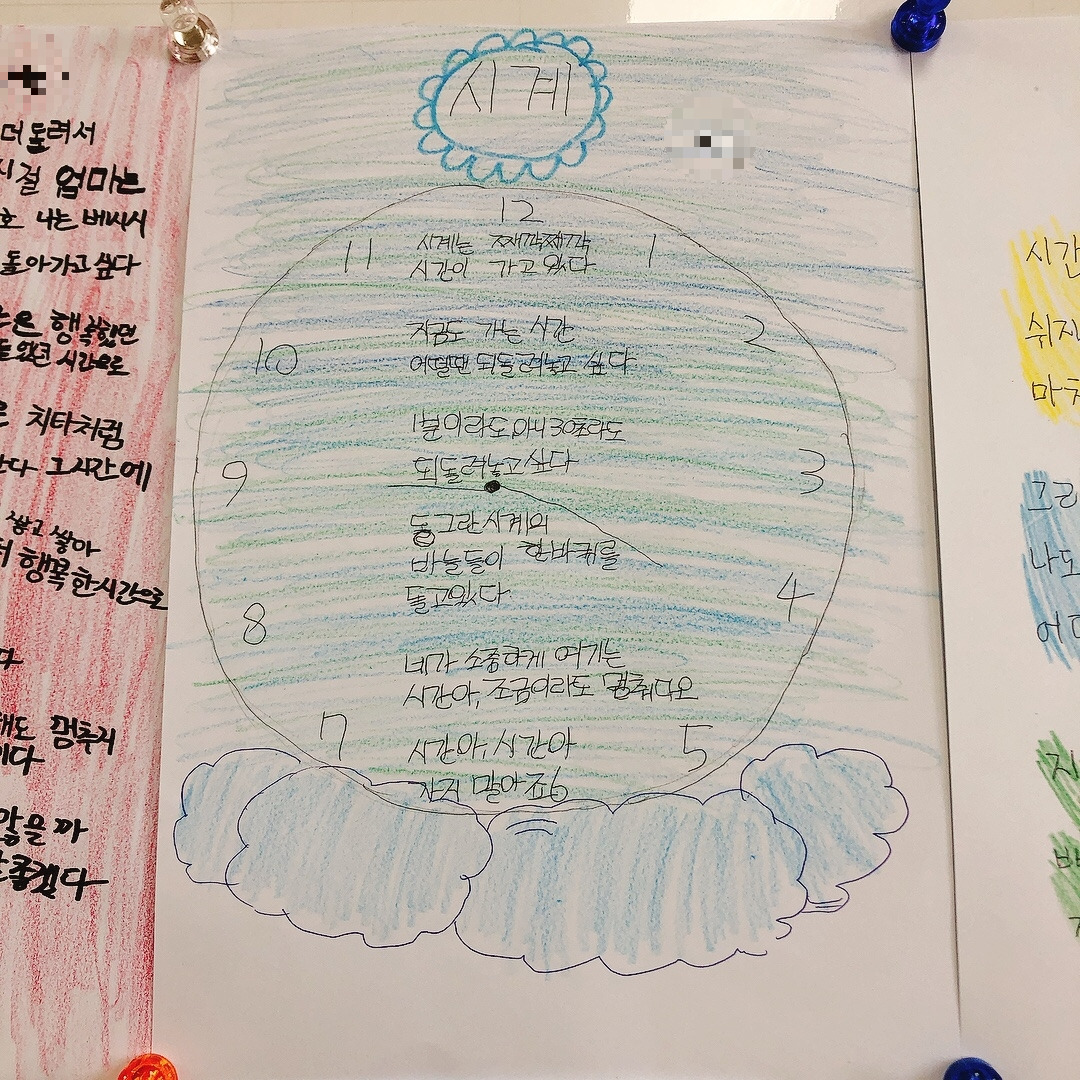 더 돌려서
시절 엄마는
호 나는 배시시
돌아가고 싶다
은 행복했던
있던 시간으로
은 치타처럼
간다 그시간에
쌓고 쌓아
행복한시간으로
다
해도 멈추지
이다
않을까
좋겠다
시계
12
11
1
10
2
9
3
8
4
7
5
시계는 째깍째깍
시간이 가고 있다
지금도 가는 시간
어떨땐 되돌려놓고 싶다
1분이라도,아니 30초라도
되돌려놓고 싶다
동그란 시계의
바늘들이 한바퀴를
돌고있다
내가 소중하게 여기는
시간아, 조금이라도 멈춰다오
시간아, 시간아
가지 말아죠
6
시간
쉬지
마치
그리
나도
어디
지
바